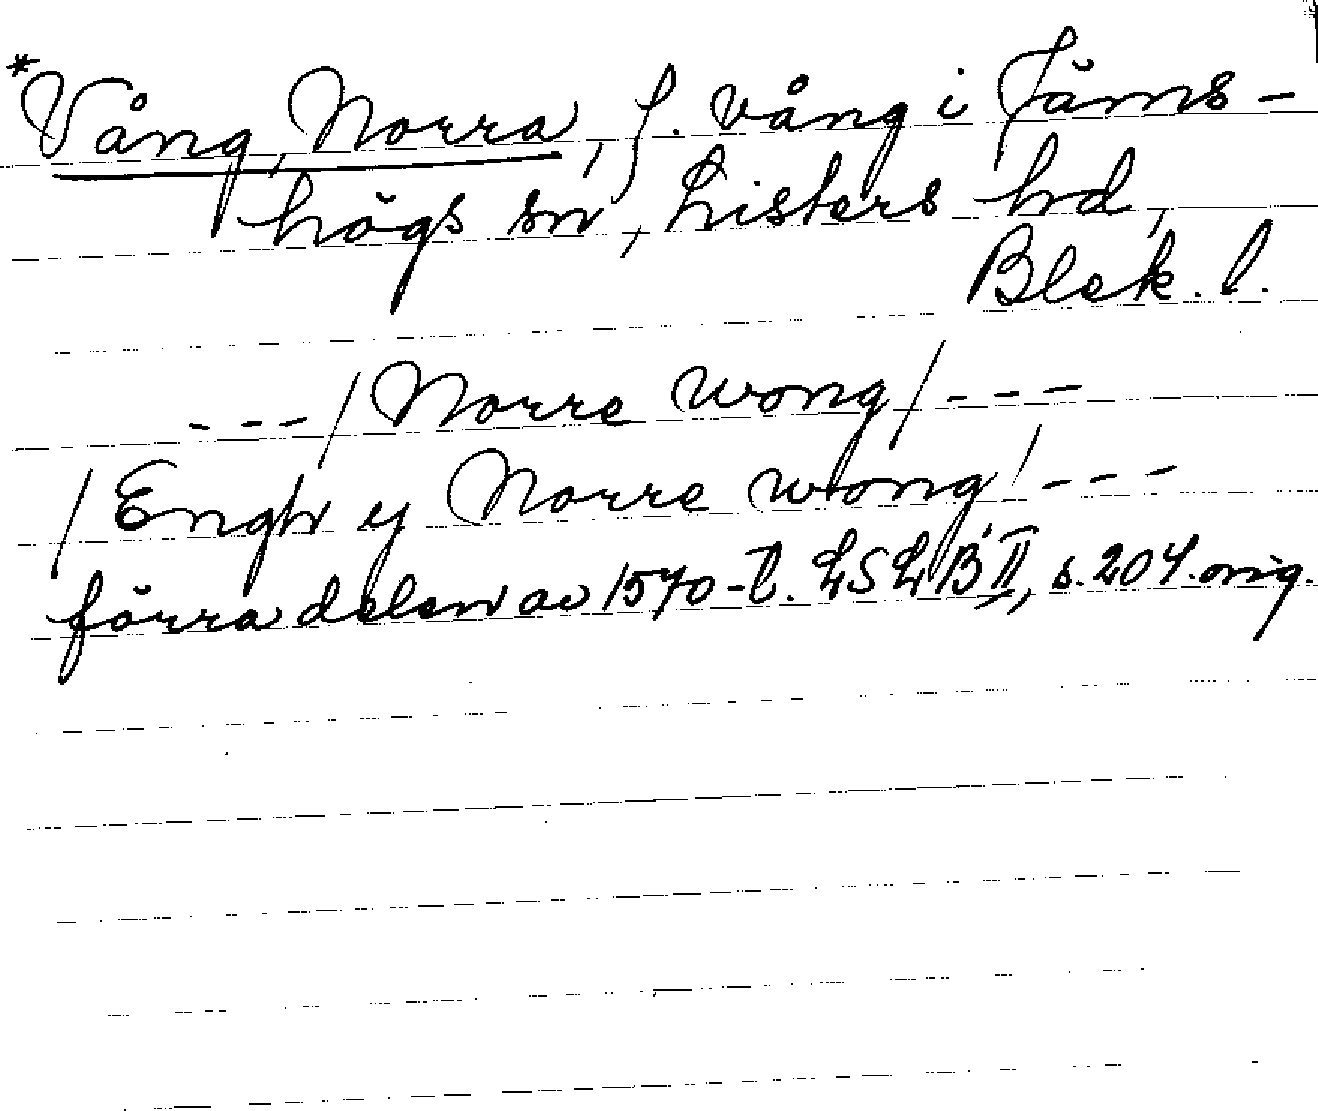 *Vång, Norra, f. vång i Jäms-
högs sn, Listers hd,
Blek. l.
---/Norre wong/---
/Engh y Norre wong/---
förra delen av 1570-t. LSLB'II, s. 204. orig.